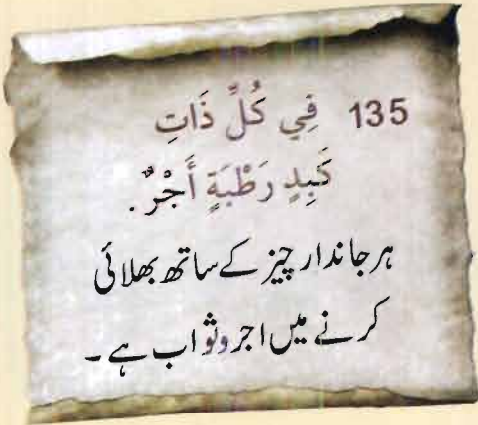 135 فِي كُلِّ ذَاتِ
كَبِدٍ رَطْبَةٍ أَجْرٌ.
ہر جاندار چیز کے ساتھ بھلائی
کرنے میں اجر و ثواب ہے۔